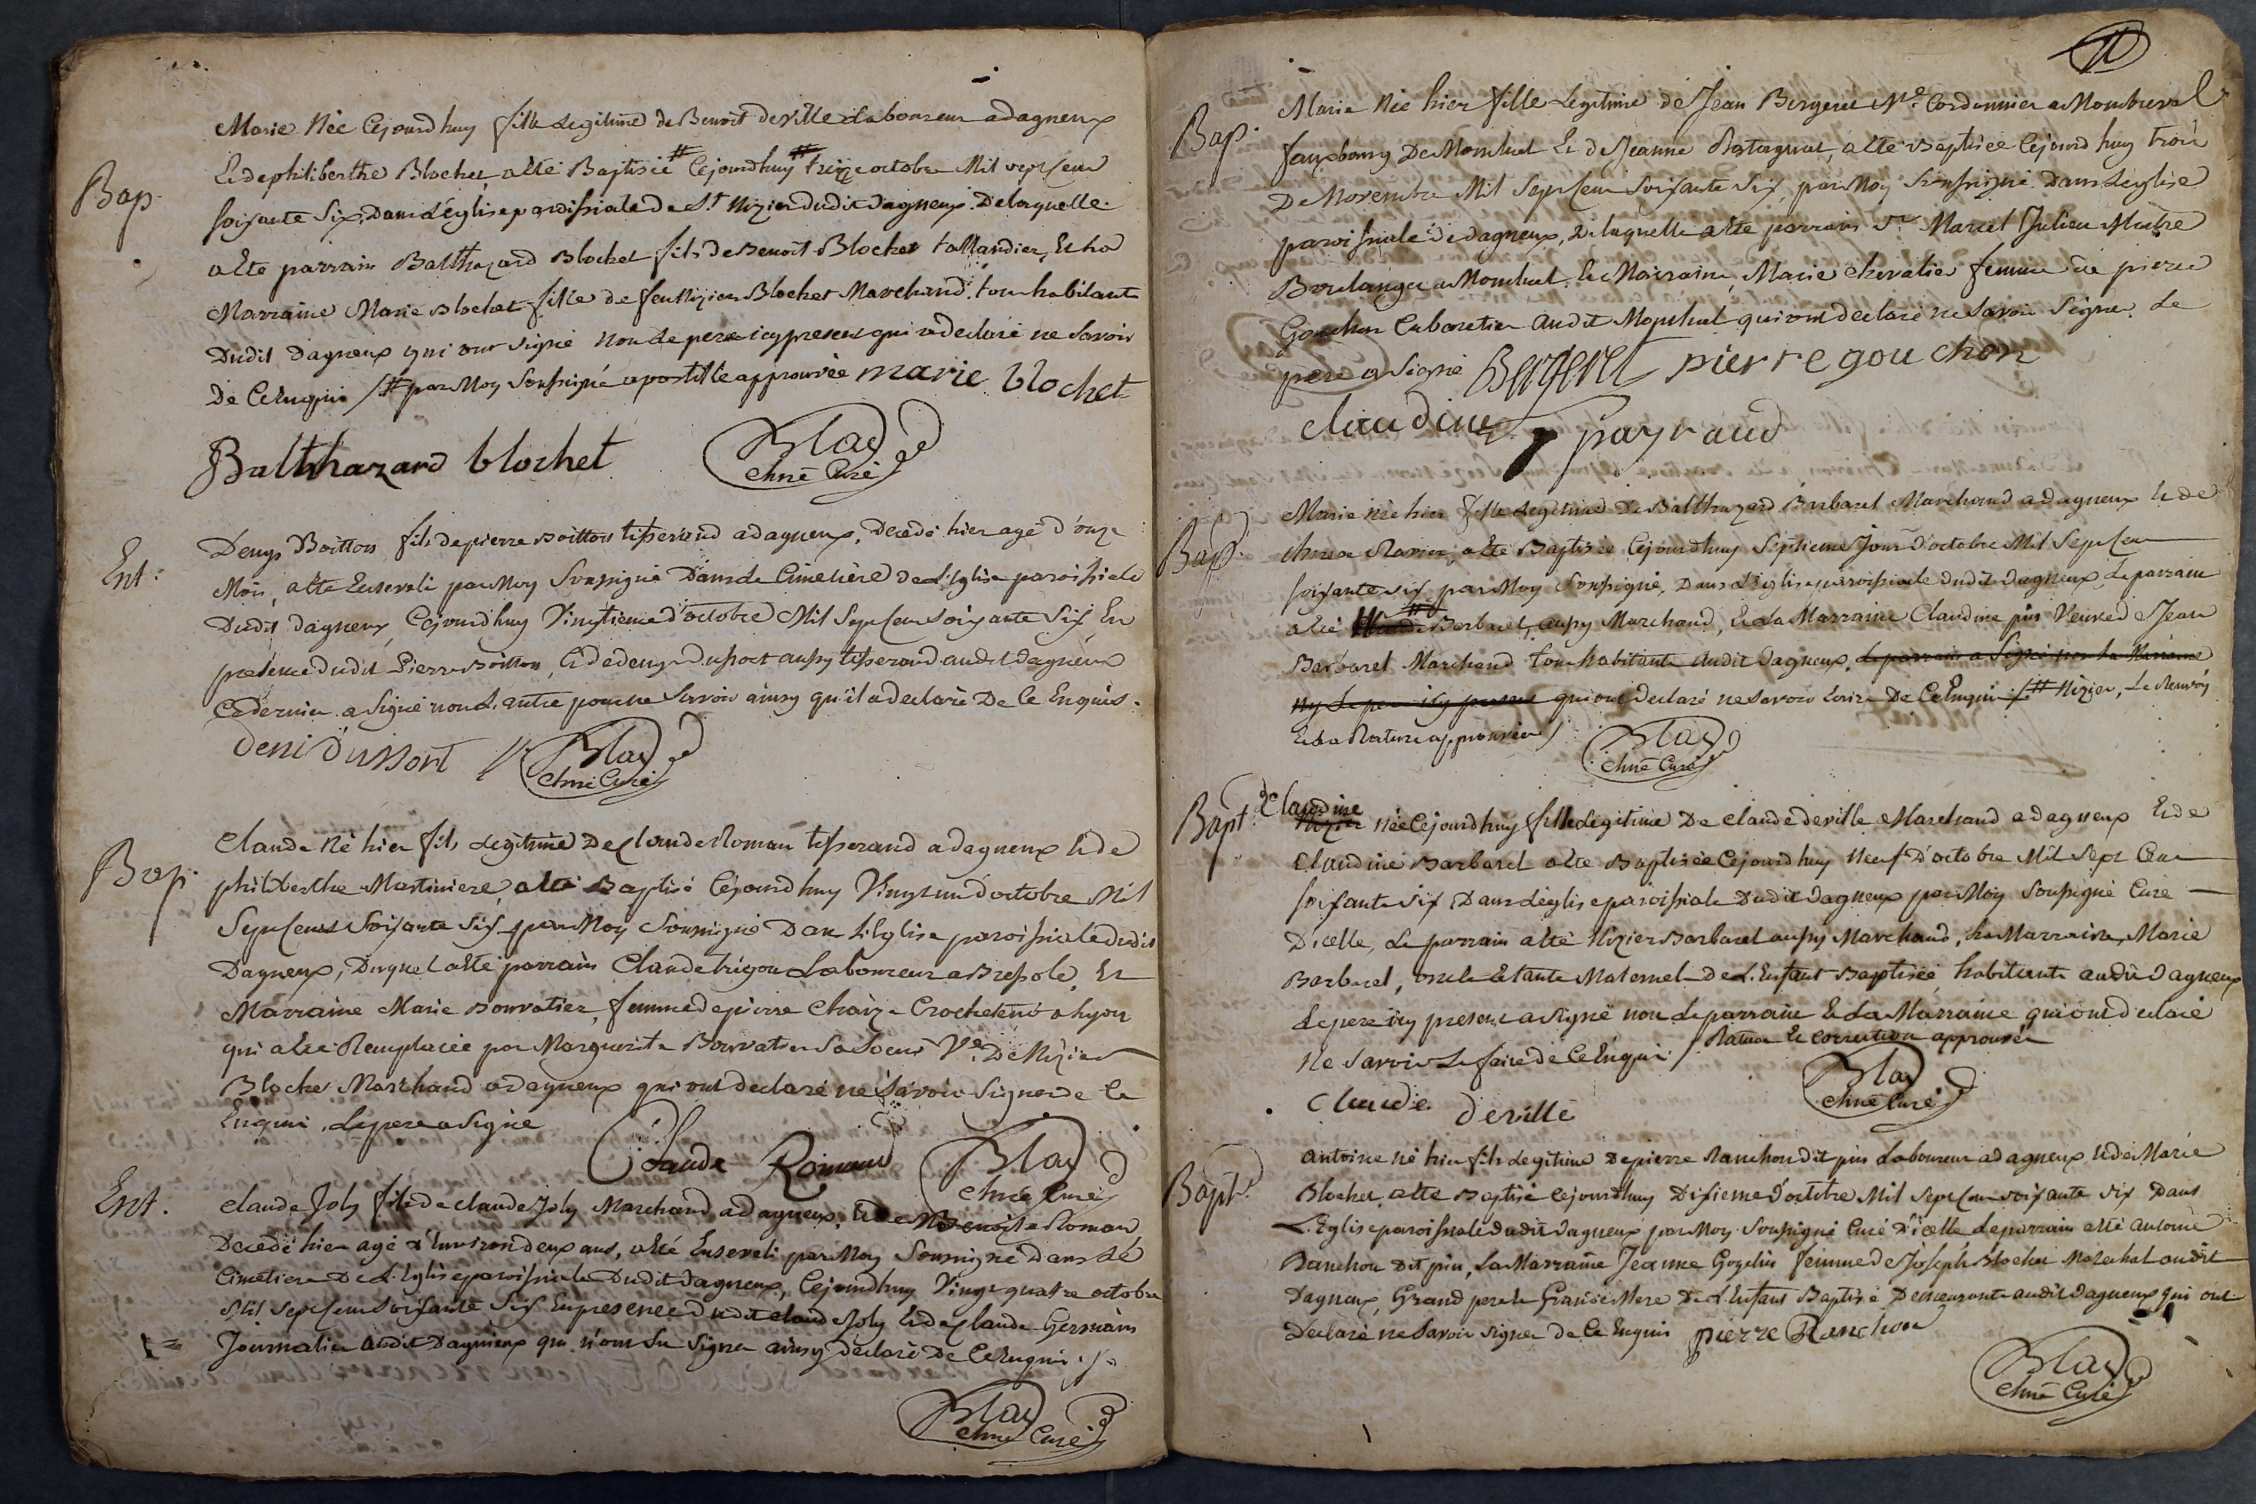 Bap.
Marie Née Cejourd huy fille Legitime de Benoit deville Laboureur adagneux
Et de philiberthe Blochet, a été Baptisée # Cejourdhuy # treize octobre Mil sept Cent
soixante Six, Dans L'église paroissiale de St Nizier dudit dagneux. De laquelle
a Eté parrain Balthazard Blochet fils de Benoit Blochet taillandier, Et la
Marraine Marie Blochet fille de feu Nizier Blochet Marchand, tous habitants
Dudit Dagneux qui ont signé non Le pere icy present qui a declaré ne Savoir
De Ce Enquis /# par Moy Soussigné apostille approuvée marie blochet
Balthazard blochet
Blad
chne Curé
Ent:
Denys Boitton fils de pierre Boitton tisserand adagneux, Decedé hier agé d'onze
Mois, a Eté Enseveli par Moy Soussigné Dans Le Cimetière de L'Eglise paroissiale
Dudit dagneux, Cejourdhuy Vingtieme d'octobre Mil Sept Cent Soixante Six, En
présence dudit Pierre Boitton, Et de denys dussort aussy tisserand audit dagneux
Ce dernier a Signé non L'autre pour ne Savoir ainsy qu'il a declaré De Ce Enquis.
deni dussort
Blad
chne Curé
Bap.
Claude Né hier fils Legitime De Claude Roman tisserand a dagneux Et de
philiberthe Martiniere, a Eté Baptisé Cejourd huy Vingt un d'octobre Mil
Sept Cent Soixante Six par Moy Soussigné Dans L'Eglise paroissiale dudit
Dagneux, Duquel a Eté parrain Claude trigon Laboureur a Bressole, Et
Marraine Marie Bouvatier, femme de pierre Chaize Crocheteur a Lyon
qui a Eté Remplacée par Marguerite Bouvatier Sa Soeur Ve De Nizier
Blochet Marchand a dagneux qui ont declaré ne Savoir Signer de Ce
Enquis, Le pere a Signé
Claude Roman
Blad
chne Curé
Ent.
Claude Joly fils de Claude Joly Marchand adagneux, Et de Benoite Roman
Decedé hier agé d'Environ deux ans, a Eté Enseveli par Moy Soussigné Dans Le
Cimetiere De L'Eglise paroissiale Dudit dagneux, Cejourdhuy Vingt quatre octobre
Mil Sept Cent Soixante Six En presence dudit Claude Joly Et de Claude Germain
Journalier audit Dagneux qui n'ont Su Signer ainsy déclaré De Ce Enquis./.
Blad
chne Curé
11
Bap.
Marie Née hier fille Legitime de Jean Bergeret Me Cordonnier a Montluel
fauxbourg De Montluel Et de Jeanne Rostagnat, a Eté Baptisée Cejourd huy trois
De Novembre Mil Sept Cent Soixante Six, par Moy Soussigné Dans L'église
paroissiale de dagneux, De laquelle a Eté parrain Sr Marcel Julien Maitre
Boulanger a Montluel, Et Marraine, Marie Chevalié femme de pierre
Gouchon Cabaretier audit Montluel qui ont declaré ne Savoir Signer. Le
pere a Signé Bergeret pierre gouchon
claudine payraud
Bapt.
Marie née hier fille Legitime De Balthazard Barbaret Marchand adagneux Et de
Ravier, a Eté Baptisée Cejourdhuy Septieme Jour d'octobre Mil Sept Cent
soixante six, par Moy Soussigné, Dans L'église paroissiale dudit dagneux, Le parrain
a Eté # Barbaret, aussy Marchand, Et La Marraine Claudine pin Veuve de Jean
Barbaret Marchand tous habitants audit dagneux, Le parrain a Signé non La Marraine
ny Le pere icy present qui ont declaré ne Savoir Ecrire De Ce Enquis /# Nizier, Le Renvoy
Et La Rature approuvée /
Blad
chne Curé
Bapt.
Claudine
Nizier Née Cejourdhuy fille Legitime De Claude deville Marchand adagneux Et de
Claudine Barbaret a Eté Baptisée Cejourdhuy Neuf d'octobre Mil Sept Cent
soixante six Dans L'église paroissiale Dudit dagneux par Moy Soussigné Curé
D'icelle, Le parrain a Eté Nizier Barbaret aussy Marchand, La Marraine, Marie
Barbaret, oncle Et tante Maternel De L'Enfant Baptisée, habitants audit dagneux
Le pere icy present a Signé non Le parrain Et La Marraine qui ont declaré
Ne Savoir Le faire de Ce Enquis / Rature Et correction approuvée
Claude deville
Blad
chne Curé
Bapt.
Antoine né hier fils Legitime De pierre Ranchon dit pin Laboureur adagneux, Et de Marie
Blochet a Eté Baptisé Cejourdhuy Dixieme d'octobre Mil Sept Cent soixante Six Dans
L'Eglise paroissiale dudit dagneux par Moy Soussigné Curé D'icelle, Le parrain a Eté Antoine
Ranchon Dit pin, La Marraine Jeanne Gozelin femme de Joseph Blochet Marechal audit
Dagneux, Grand pere Et Grande Mere De L'Enfant Baptisé Demeurants audit dagneux qui ont
Declaré ne Savoir Signer de Ce Enquis pierre Ranchon
Blad
chne Curé